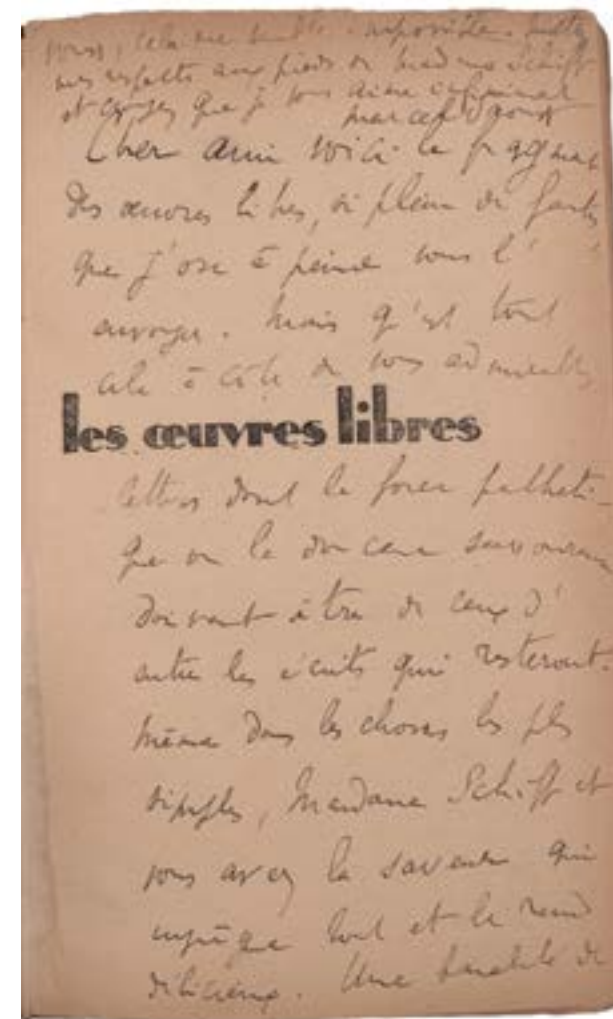 vous, cela me semble impossible. Mettez
mes respects aux pieds de Madame Schiff
et croyez que je vous aime infiniment
Marcel Proust
Cher ami voici le fragment
des œuvres libres, si plein de fautes
que j'ose à peine vous l'
envoyer. Mais qu'est tout
cela à côté de vos admirables
les œuvres libres
lettres dont la force pathéti-
que ou la douceur savoureuse
doivent être de ceux d'
entre les écrits qui resteront.
même dans les choses les plus
simples, Madame Schiff et
vous avez la saveur qui
imprègne tout et le rend
délicieux. Une de